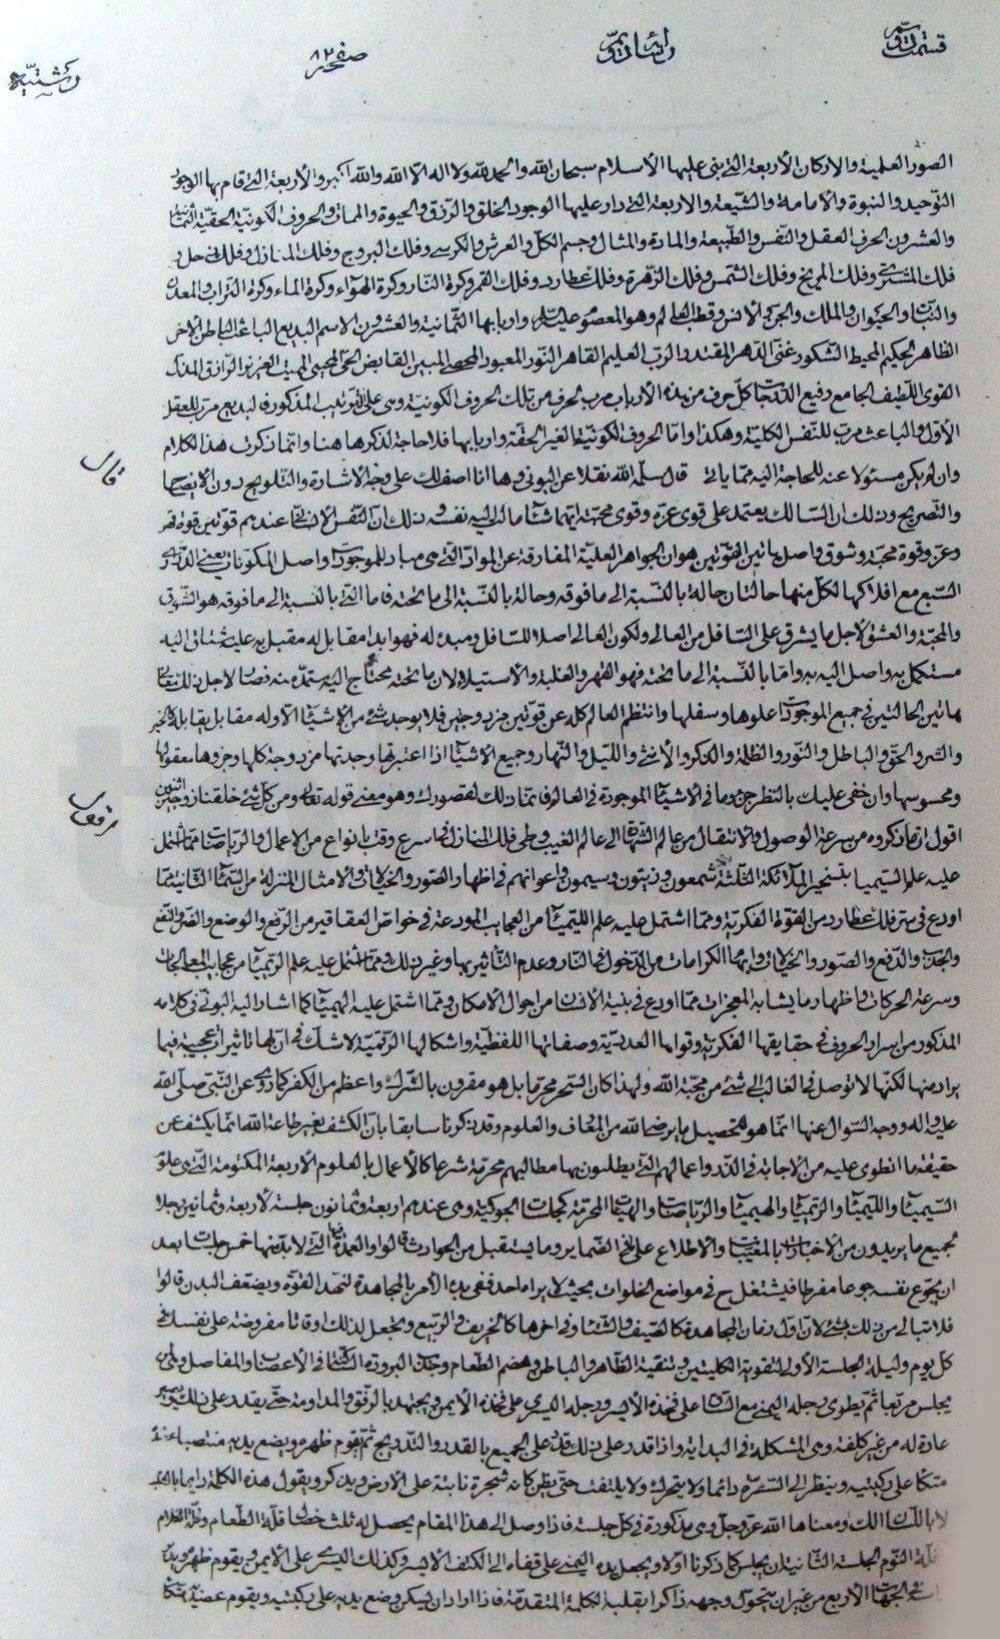 صفحه ٨٢
الصور العلمية والاركان الأربعة التي بنى عليها الأسلام سبحان الله والحمد لله ولا اله الا الله والله اكبر والأربعة التي قام بها
التوحيد والنبوة والأمامة والشيعة والاربعة التي دار عليها الوجود الخلق والرزق والحيوة والممات والحروف الكونية الحقية
والعشرون الحرف العقل والنفس والطبيعة والمادة والمثال وجسم الكل والعرش والكرسي وفلك البروج وفلك المنازل وفلك زحل و
فلك المشتري وفلك المريخ وفلك الشمس وفلك الزهرة وفلك عطارد وفلك القمر وكرة النار وكرة الهواء وكرة الماء وكرة التراب والمعدن
والنبات والحيوان والملك والجن والانس وقطب العالم وهو المعصوم عليه السلام واربابها الثمانية والعشرون الاسم البديع الباعث الباطن الآخر
الظاهر الحكيم المحيط الشكور غني الدهر المقتدر الرب العليم القاهر النور المصور المحصي المبين القابض الحي المحيي المميت العزيز الرازق المذل
القوي اللطيف الجامع رفيع الدرجات كل حرف من هذه الأرباب مرب لحرف من تلك الحروف الكونية وهي على الترتيب المذكور فالبديع مرب للعقل
الأول والباعث مرب للنفس الكلية وهكذا واما الحروف الكونية الغير الحقة واربابها فلا حاجة لذكرها هنا وانما ذكرت هذا الكلام
وان لم يكن مسئولا عنه للحاجة اليه مما ياتي قال سلمه الله نقلا عن البوني وها انا اصف لك على وجه الأشارة والتلويح دون الايضاح
والتصريح وذلك ان السالك يعتمد على قوى عزة وقوى محبة ايهما شاء مال اليه نفسه وذلك ان النفس الانسانية عندهم قوتين قوة قهر
وعز وقوة محبة وشوق واصل هاتين القوتين هو ان الجواهر العلية المفارقة عن المواد التي هي مبادي للموجودات واصل المكونات يعني الدراري
السبع مع افلاكها لكل منها حالتان حالة بالنسبة الى ما فوقه وحالة بالنسبة الى ما تحته فاما التي بالنسبة الى ما فوقه هو الشوق
والمحبة والعشق لاجل ما يشرق على السافل من العالي ولكون العالي اصلا للسافل ومبدء له فهو ابدا مقابل له مقبل به عليه مشتاق اليه
مستكمل به واصل اليه به واما بالنسبة الى ما تحته فهو القهر والغلبة والاستيلاء لان ما تحته محتاج اليه يستمد منه فصار لاجل ذلك
هاتين الحالتين في جميع الموجودات علوها وسفلها وانتظم العالم كله عن قوتين مزدوجتين فلا يوجد شيء من الاشياء الا وله مقابل يقابله كالخير
والشر والحق والباطل والنور والظلمة والذكر والأنثى والليل والنهار وجميع الاشياء اذا اعتبرتها وجدتها مزدوجة كلها وجزوها معقولها
ومحسوسها وان خفي عليك بالنظر جزء ما في الاشياء الموجودة في العالم فانما ذلك لقصورك وهو معنى قوله تعالى ومن كل شيء خلقنا زوجين اثنين
اقول ان ما ذكروه من سرعة الوصول والانتقال من عالم الشهادة الى عالم الغيب وطي فلك المنازل في اسرع وقت بانواع من الاعمال والرياضات مما اشتمل
عليه علم السيميا بتسخير الملائكة الثلثة شمعون وزيتون وسيمون واعوانهم في اظهار الصور والخيالات والامثال المنزلة من السماء الثانية مما
اودع في سر فلك عطارد من القوة الفكرية ومما اشتمل عليه علم الليميا من العجايب المودعة في خواص العقاقير من الرفع والوضع والضر والنفع
والجذب والدفع والصور والخيالات وايهام الكرامات من الدخول في النار وعدم التأثير بها وغير ذلك ومما اشتمل عليه علم الريميا من عجايب المعالجات
وسرعة الحركات واظهار ما يشابه المعجزات مما اودع في بنية الانسان من احوال الامكان ومما اشتمل عليه الهيميا كما اشار اليه البوني في كلامه
المذكور من اسرار الحروف في حقايقها الفكرية وقواها العددية وصفاتها اللفظية واشكالها الرقمية لا شك في ان لها تاثيرات عجيبة فيما
يراد منها لكنها لا توصل في الغالب الى شيء من محبة الله ولهذا كان السحر محرما بل هو مقرون بالشرك واعظم من الكفر كما روي عن النبي صلى الله
عليه واله ووجه السؤال عنها انما هو لتحصيل ما يرضي الله من المعارف والعلوم وقد ذكرنا سابقا بان الكشف بغير طاعة الله انما يكشف عن
حقيقة ما انطوى عليه من الاجابة في الذر واعمالهم التي يطلبون بها مطالبهم محرمة شرعا كالأعمال بالعلوم الاربعة المكتومة التي هي علوم
السيميا والليميا والريميا والهيميا والرياضات والهيئات المحرمة كجلسات الجوكية وهي عندهم اربعة وثمانون جلسة لأربعة وثمانين رجلا
لجميع ما يريدون من الأخبارات بالمغيبات والاطلاع على ما في الضماير وما يستقبل من الحوادث قالوا والعمدة التي لا بد منها خمس جلسات بعد
ان يجوع نفسه جوعا مفرطا فيشتغل ح في مواضع الخلوات بحيث لا يراه احد ففي بدء الأمر بالمجاهدة تخمد القوة ويضعف البدن قالوا
فلا تبالي من ذلك بشيء لان اول زمان المجاهدة كالصيف والشتاء واخرها كالخريف والربيع وتجعل لذلك اوقاتا مفروضة على نفسك في
كل يوم وليلة الجلسة الأولى لتقوية الكليتين وتنقية الظاهر والباطن وهضم الطعام وجذب البرودة الكائنة في الأعصاب والمفاصل وهي ان
يجلس مربعا ثم يطوي رجله اليمنى مع الساق على فخذه الأيسر ورجله اليسرى على فخذه الأيمن ويجتهد بالرفق والمداومة حتى يقدر على ذلك ويصير
عادة له من غير كلفة وهي المشكلة في البداية واذا قدر على ذلك قدر على الجميع بالقدر والتدريج ثم يقوم ظهره ويضع يديه منتصبا عنه
متكأ على ركبتيه وينظر الى السرة دائما ولا يتحرك ولا يلتفت حتى يظن كانه شجرة نابتة على الارض ويذكر ويقول هذه الكلمة دايما بالقلب
لا باللسان الك ومعناها الله عز وجل وهي مذكورة في كل جلسة فاذا وصل الى هذا المقام يحصل له ثلث خصال قلة الطعام وقلة الكلام
وقلة النوم الجلسة الثانية ان يجلس كما ذكرنا اولا ويجعل يده اليمنى على قفاه الى الكتف الايسر وكذلك اليسرى على الأيمن ويقوم ظهره ويدير
راسه في الجهات الأربع من غير ان يتحول وجهه ذاكرا بقلبه الكلمة المتقدمة فاذا اراد ان يسكن وضع يديه على ركبتيه ويقوم عضديه متكأ
قال